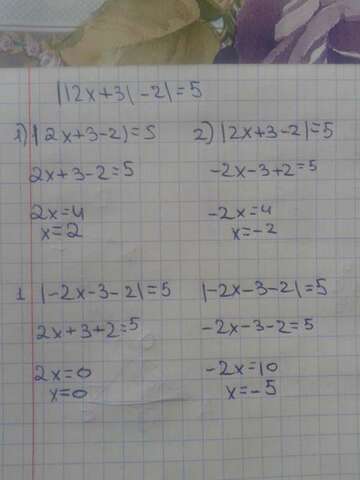 ||2x+3|-2|=5
1) |2x+3-2|=5 2) |2x+3-2|=5
2x+3-2=5 -2x-3+2=5
2x=4 -2x=4
x=2 x=-2
1 |-2x-3-2|=5 |-2x-3-2|=5
2x+3+2=5 -2x-3-2=5
2x=0 -2x=10
x=0 x=-5